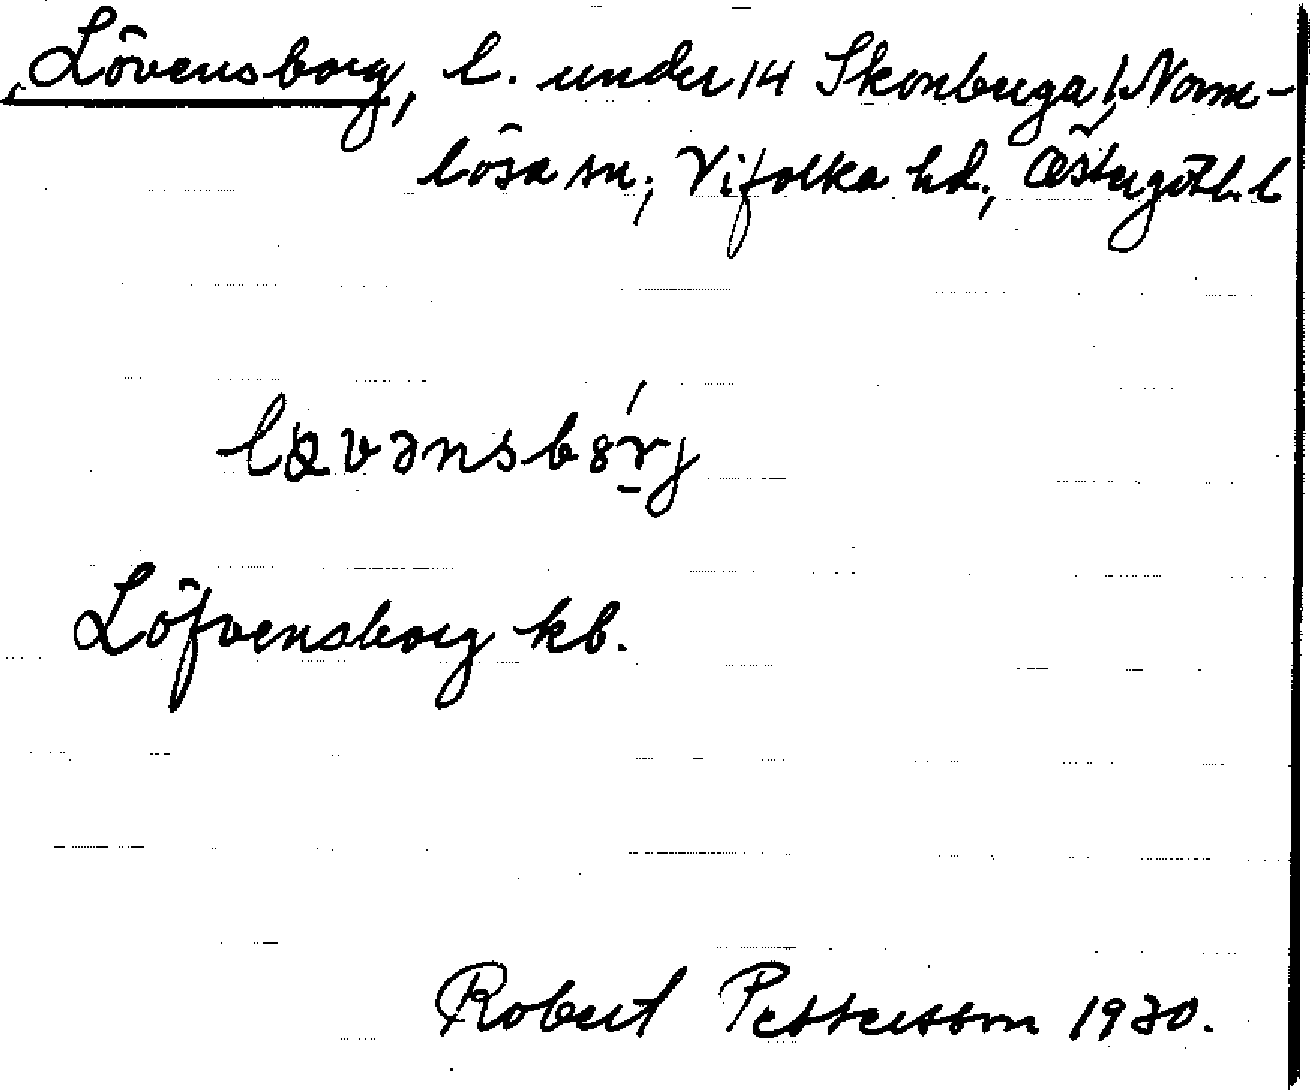 Lövensborg, l. under 14 Skonberga, Norm-
lösa sn, Vifolka hd, Östergötl. l
Löfvensborg kb.
Robert Pettersson 1930.